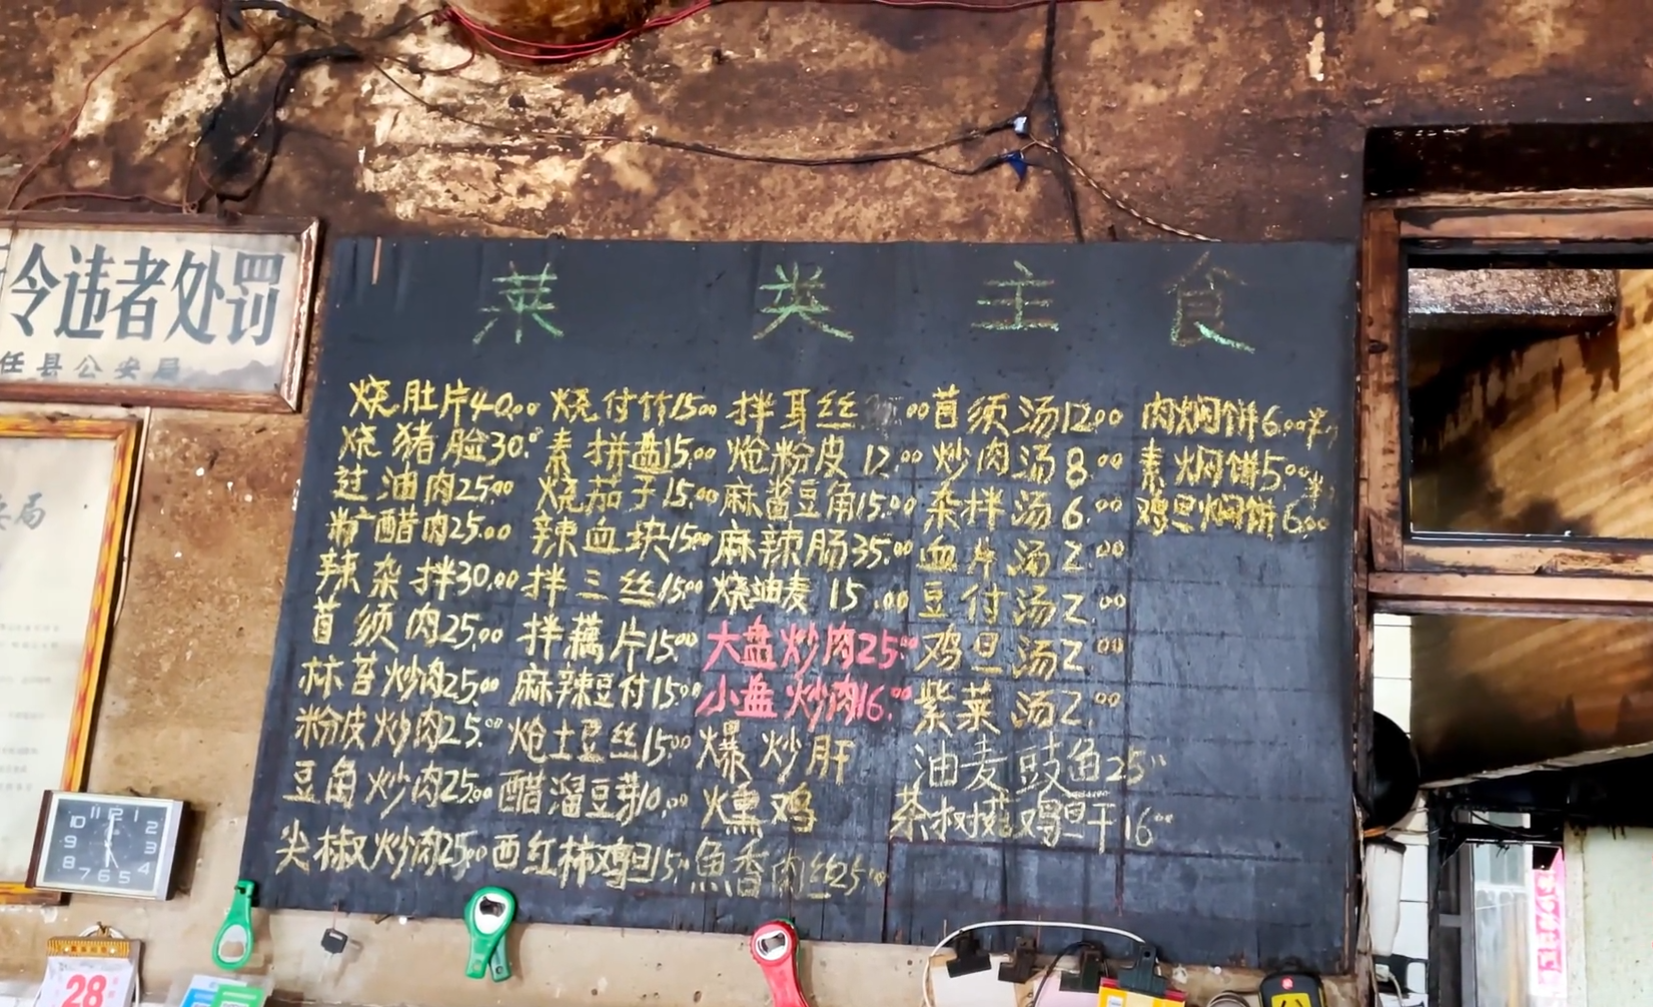 令违者处罚
任县公安局
安局
菜类主食
烧肚片40.00 烧付竹15.00 拌耳丝 .00 苜须汤12.00 肉焖饼6.00半斤
烧猪脸30.00 素拼盘15.00 炝粉皮12.00 炒肉汤8.00 素焖饼5.00半斤
过油肉25.00 烧茄子15.00 麻酱豆角15.00 杂拌汤6.00 鸡旦焖饼6.00
醋肉25.00 辣血块15.00 麻辣肠35.00 血片汤2.00
辣杂拌30.00 拌三丝15.00 烧油麦15.00 豆付汤2.00
苜须肉25.00 拌藕片15.00 大盘炒肉25.00 鸡旦汤2.00
蒜苔炒肉25.00 麻辣豆付15.00 小盘炒肉16.00 紫菜汤2.00
粉皮炒肉25.00 炝土豆丝15.00 爆炒肝 油麦豉鱼25.00
豆角炒肉25.00 醋溜豆芽10.00 燻鸡 茶树菇鸡旦干16.00
尖椒炒肉25.00 西红柿鸡旦15.00 魚香肉丝25.00
11 12 1
10 2
9 3
8 4
7 6 5
28